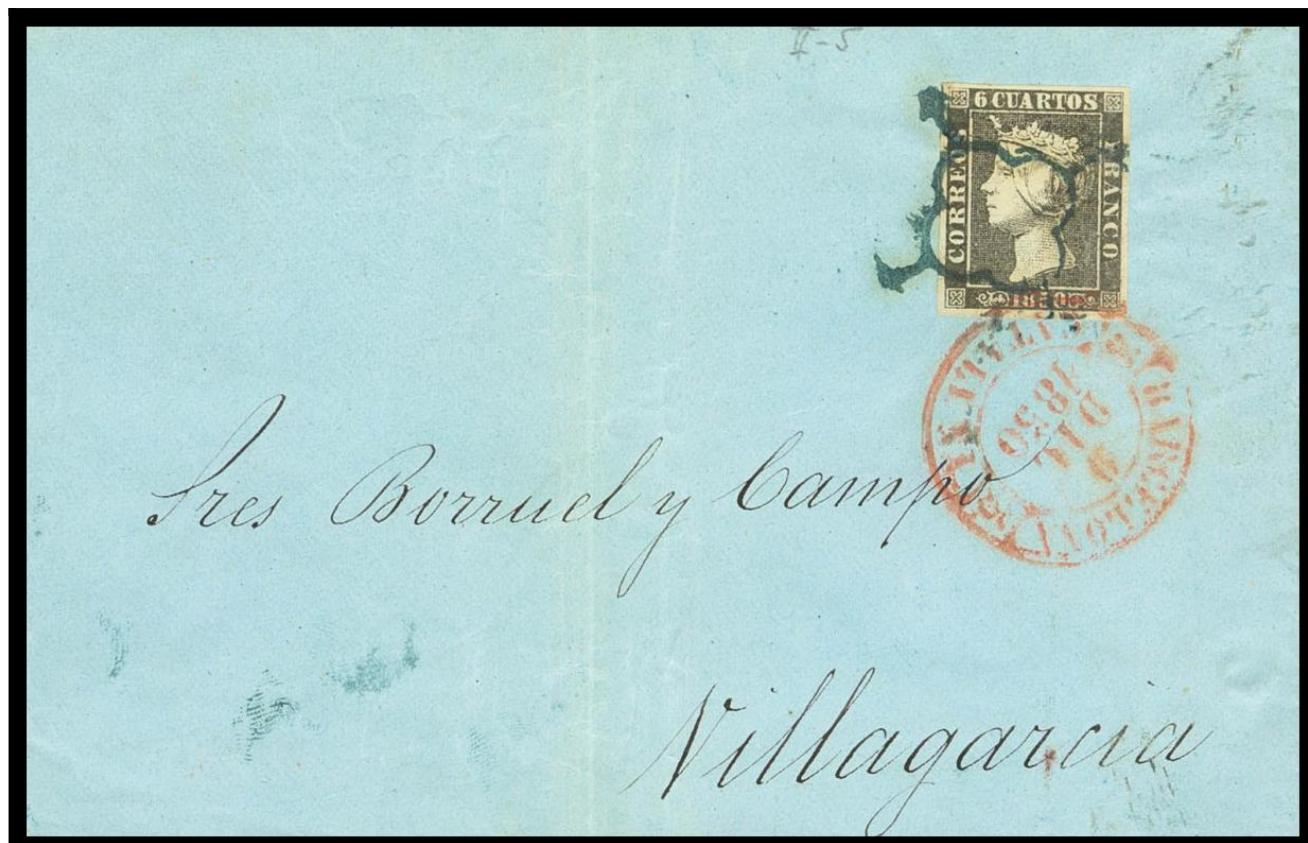 II-5
6 CUARTOS
CORREOS
FRANCO
1850
BARCELONA
9
DIC
1850
Sres Borruel y Campo
Villagarcia